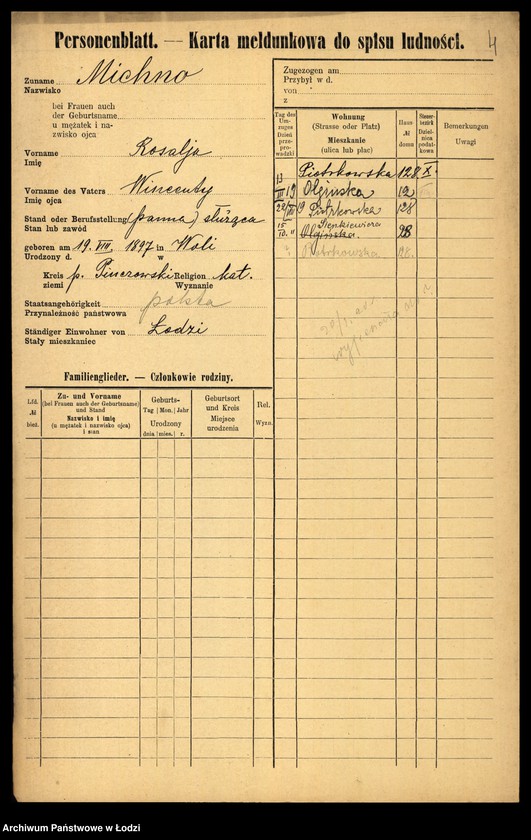 4
Personenblatt. — Karta meldunkowa do spisu ludności.
Zuname Michno
Nazwisko
bei Frauen auch
der Geburtsname
u mężatek i na-
zwisko ojca
Vorname Rosalja
Imię
Vorname des Vaters Wincenty
Imię ojca
Stand oder Berufsstellung (panna) służąca
Stan lub zawód
geboren am 19. VIII. 1897 in Woli
Urodzony d. w
Kreis p. Pinczowski Religion kat.
ziemi Wyznanie
Staatsangehörigkeit polska
Przynależność państwowa
Ständiger Einwohner von Łodzi
Stały mieszkaniec
Zugezogen am
Przybył w d.
von
z
Tag des Um-zuges Dzień prze-prowadzki
Wohnung (Strasse oder Platz) Mieszkanie (ulica lub plac)
Haus № domu
Steuer-bezirk Dzielnica podat-kowa
Bemerkungen Uwagi
Piotrkowska 128 X.
Olgińska 12
Piotrkowska 128
Sienkiewicza
15/10. " Olgińska 98
Piotrkowska
Familienglieder. — Członkowie rodziny.
Lfd. № bież.
Zu- und Vorname (bei Frauen auch der Geburtsname) und Stand Nazwisko i imię (u mężatek i nazwisko ojca) i stan
Geburts- Tag Mon. Jahr Urodzony dnia mies. r.
Geburtsort und Kreis Miejsce urodzenia
Rel. Wyzn.
Archiwum Państwowe w Łodzi